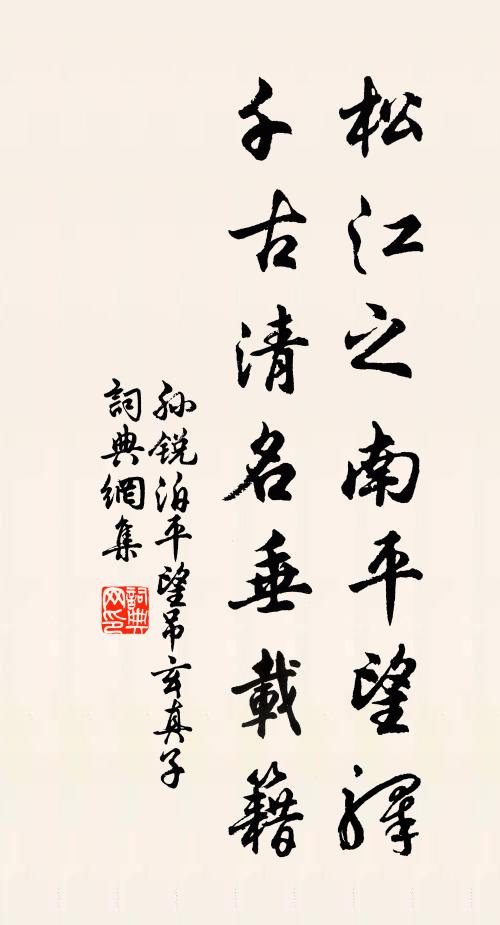 松江之南平望驛
千古清名垂載籍
孫銳泊平望吊玄真子
詞典網集
詞典网印